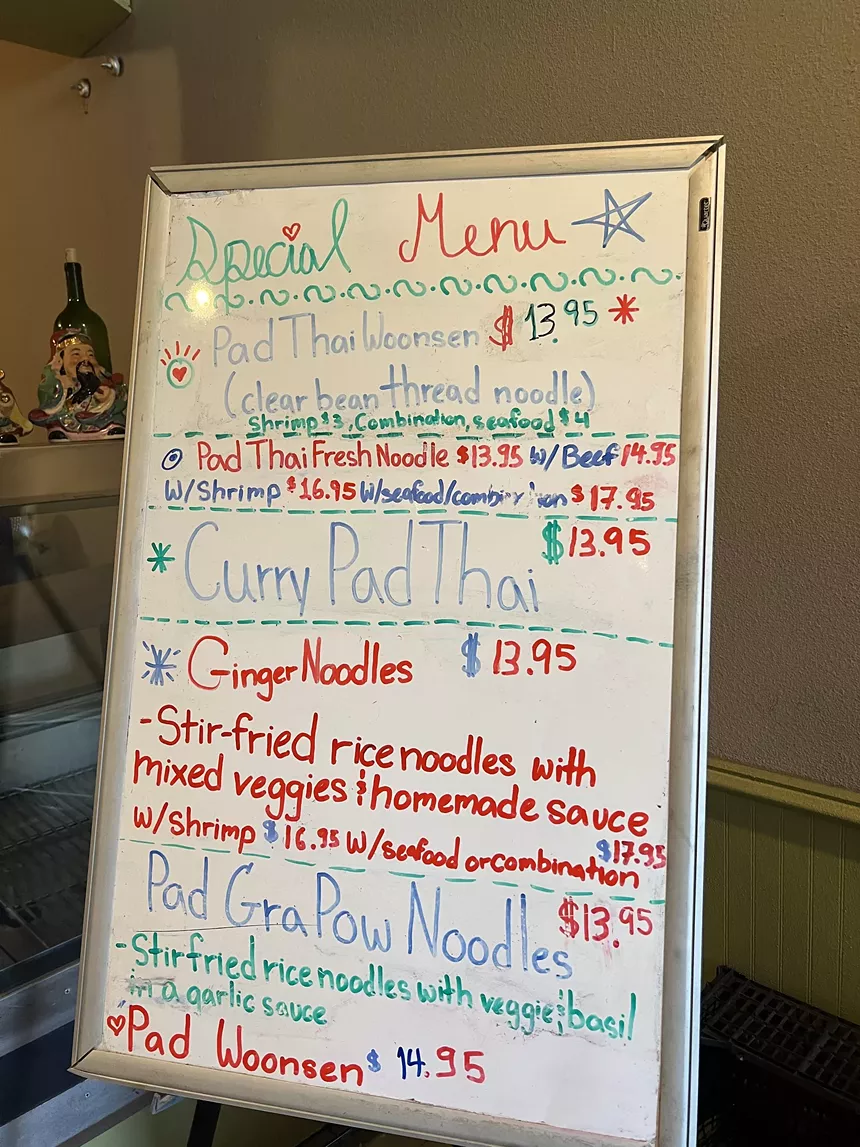 Special Menu
Pad Thai Woonsen $13.95
(clear bean thread noodle)
Shrimp $3, Combination, seafood $4
Pad Thai Fresh Noodle $13.95 w/ Beef 14.95
w/Shrimp $16.95 w/seafood/combin tion $17.95
Curry Pad Thai $13.95
Ginger Noodles $13.95
-Stir-fried rice noodles with
mixed veggies & homemade sauce
w/Shrimp $16.95 w/seafood or combination $17.95
Pad Gra Pow Noodles $13.95
-Stir fried rice noodles with veggie & basil
in a garlic sauce
Pad Woonsen $14.95